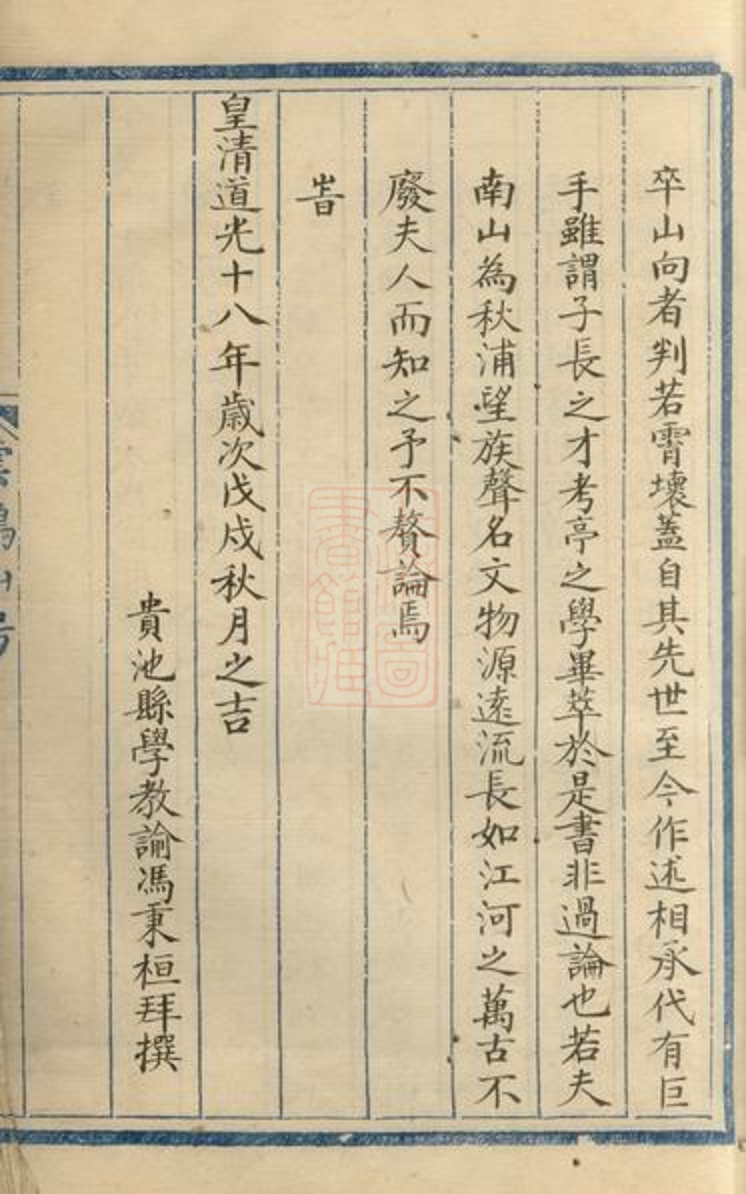 卒山向者判若霄壤蓋自其先世至今作述相承代有巨
手雖謂子長之才考亭之學畢萃於是書非過論也若夫
南山為秋浦望族聲名文物源遠流長如江河之萬古不
廢夫人而知之予不贅論焉
旹
皇清道光十八年歲次戊戌秋月之吉
貴池縣學教諭馮秉桓拜撰